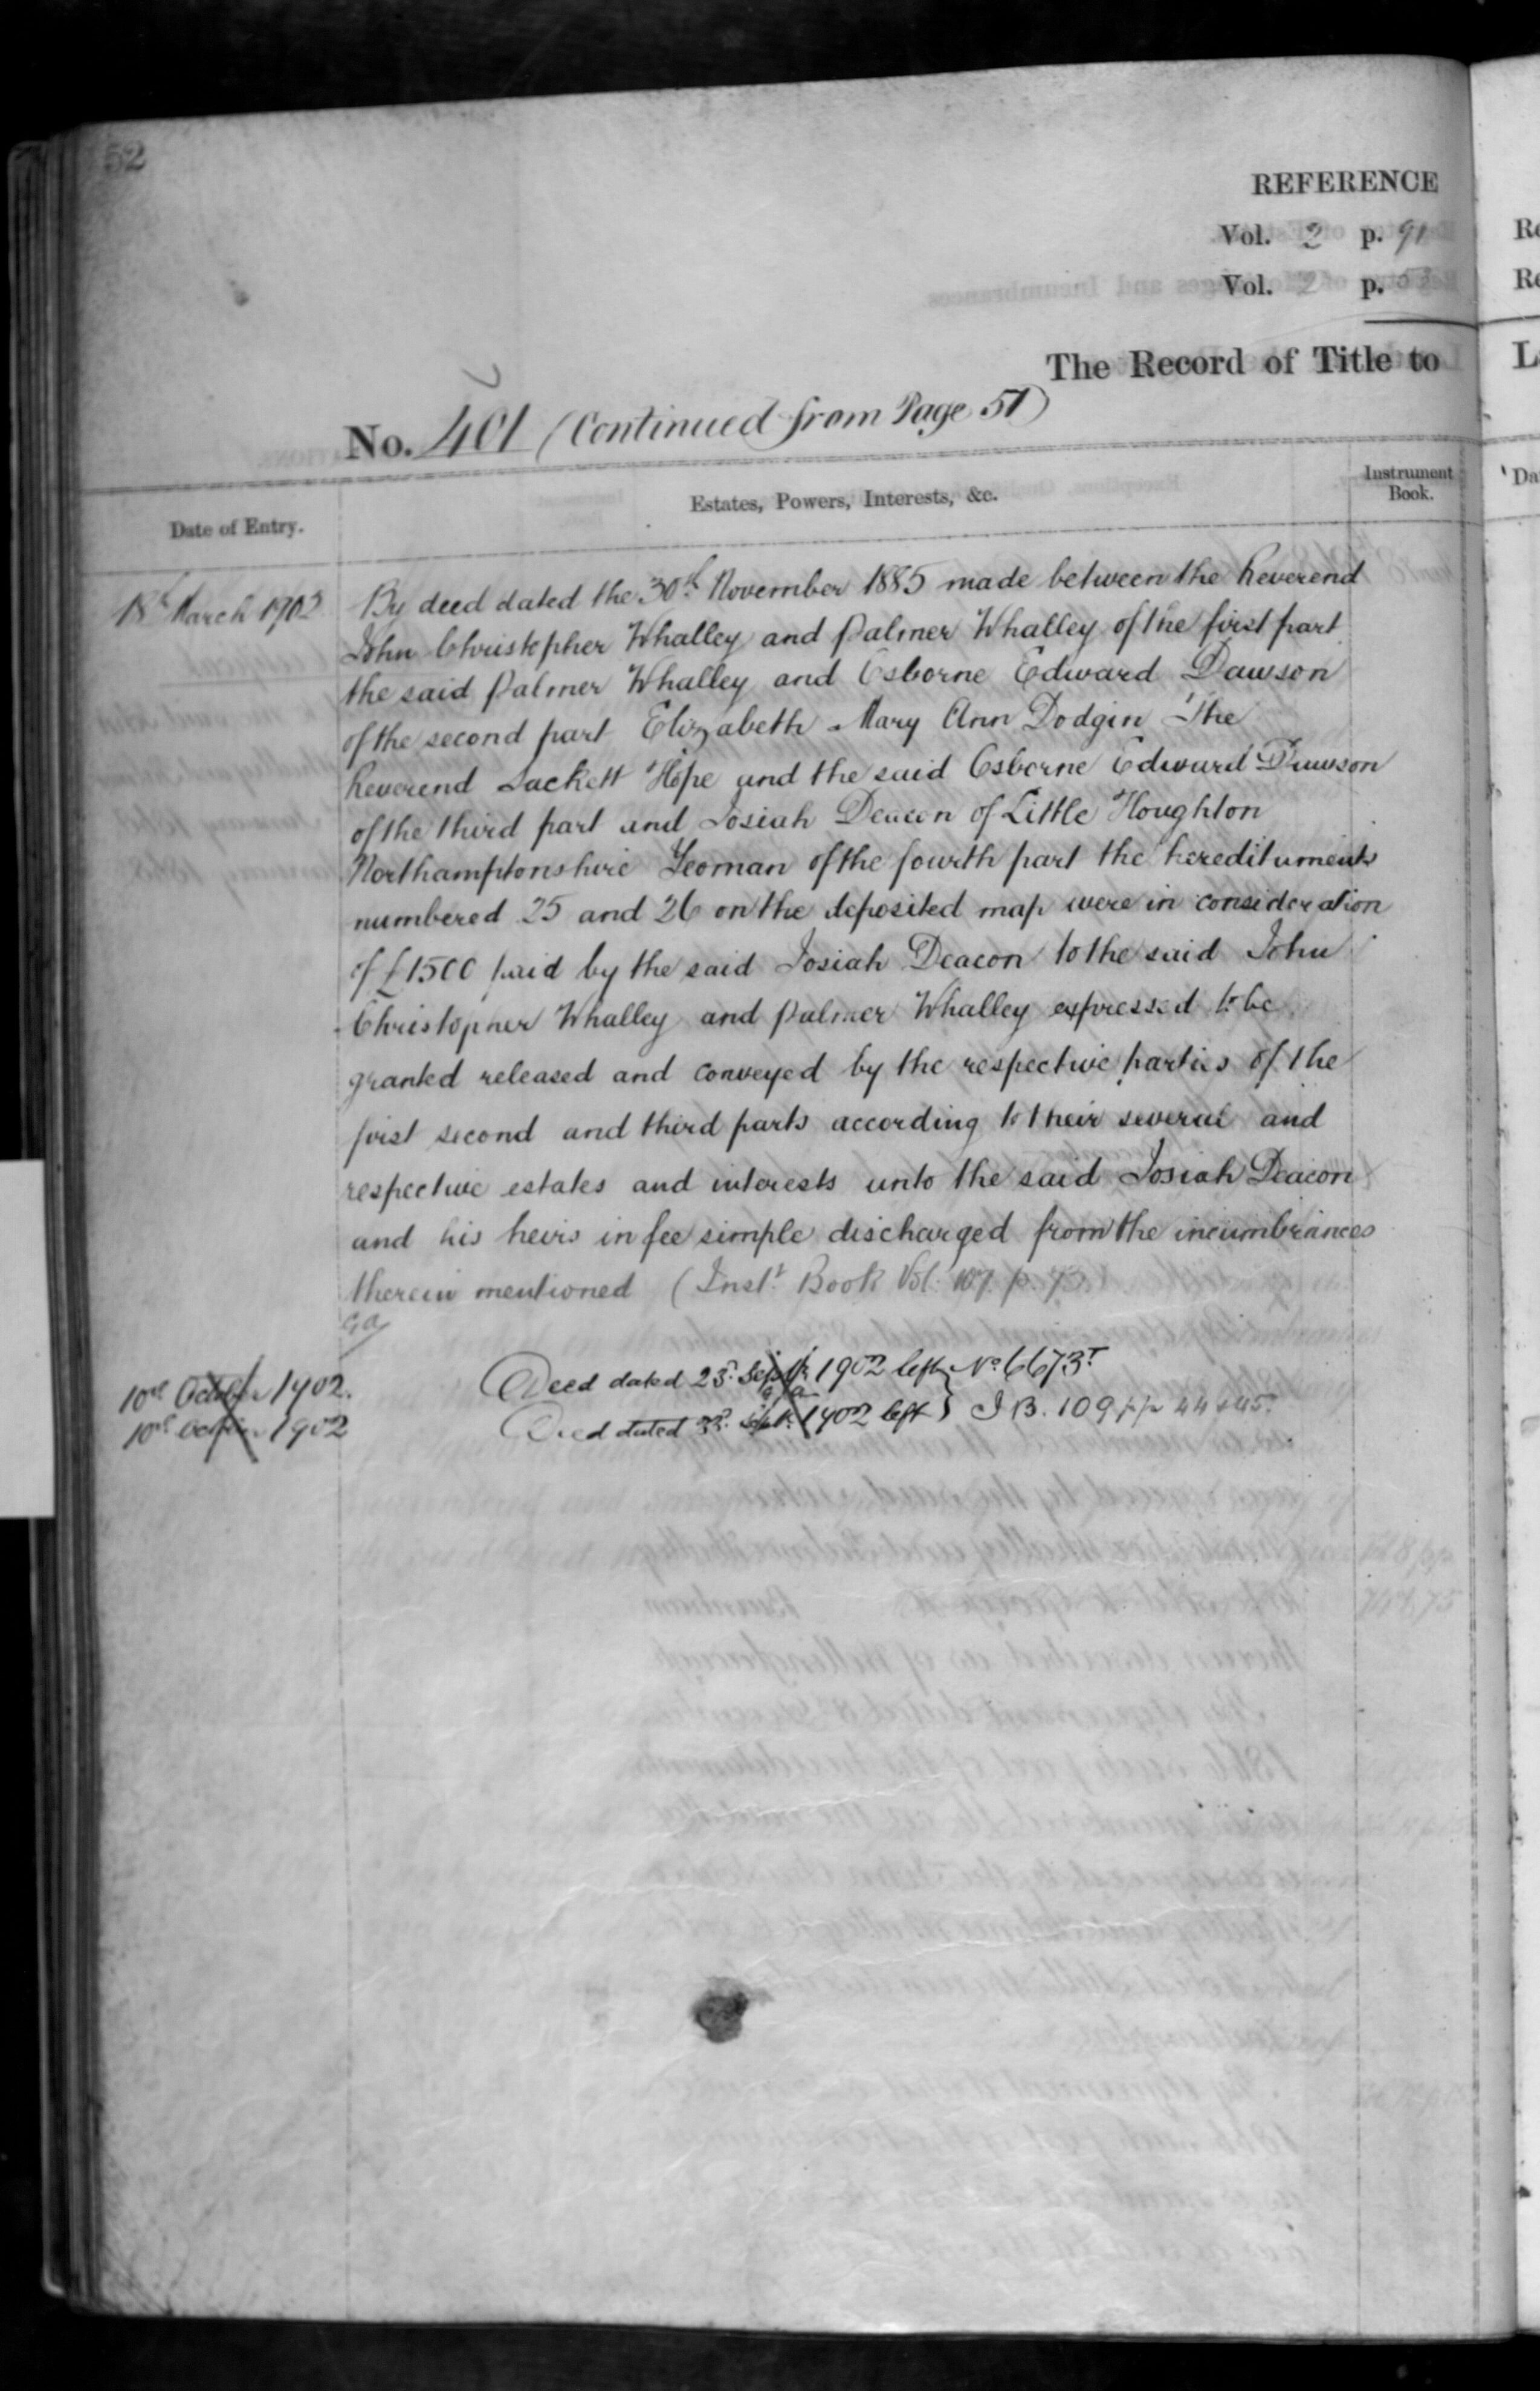 52
REFERENCE
Vol. 2 p. 91
Vol. 2 p.
The Record of Title to
No. 401 (Continued from Page 51)
Date of Entry.
Estates, Powers, Interests, &c.
Instrument
Book.
18th March 1903
By deed dated the 30th November 1885 made between the Reverend
John Christopher Whalley and Palmer Whalley of the first part
the said Palmer Whalley and Osborne Edward Dawson
of the second part Elizabeth Mary Ann Dodgin The
Reverend Sackett Hope and the said Osborne Edward Dawson
of the third part and Josiah Deacon of Little Houghton
Northamptonshire Yeoman of the fourth part the hereditaments
numbered 25 and 26 on the deposited map were in consideration
of £1500 paid by the said Josiah Deacon to the said John
Christopher Whalley and Palmer Whalley expressed to be
granted released and conveyed by the respective parties of the
first second and third parts according to their several and
respective estates and interests unto the said Josiah Deacon
and his heirs in fee simple discharged from the incumbrances
therein mentioned (Inst. Book Vol. 107 p. 73.)
10th October 1902. Deed dated 23rd Septr. 1902 left No 6673T
10th October 1902 Deed dated 23rd Sept. 1902 left } I B. 109 pp 44 & 45.